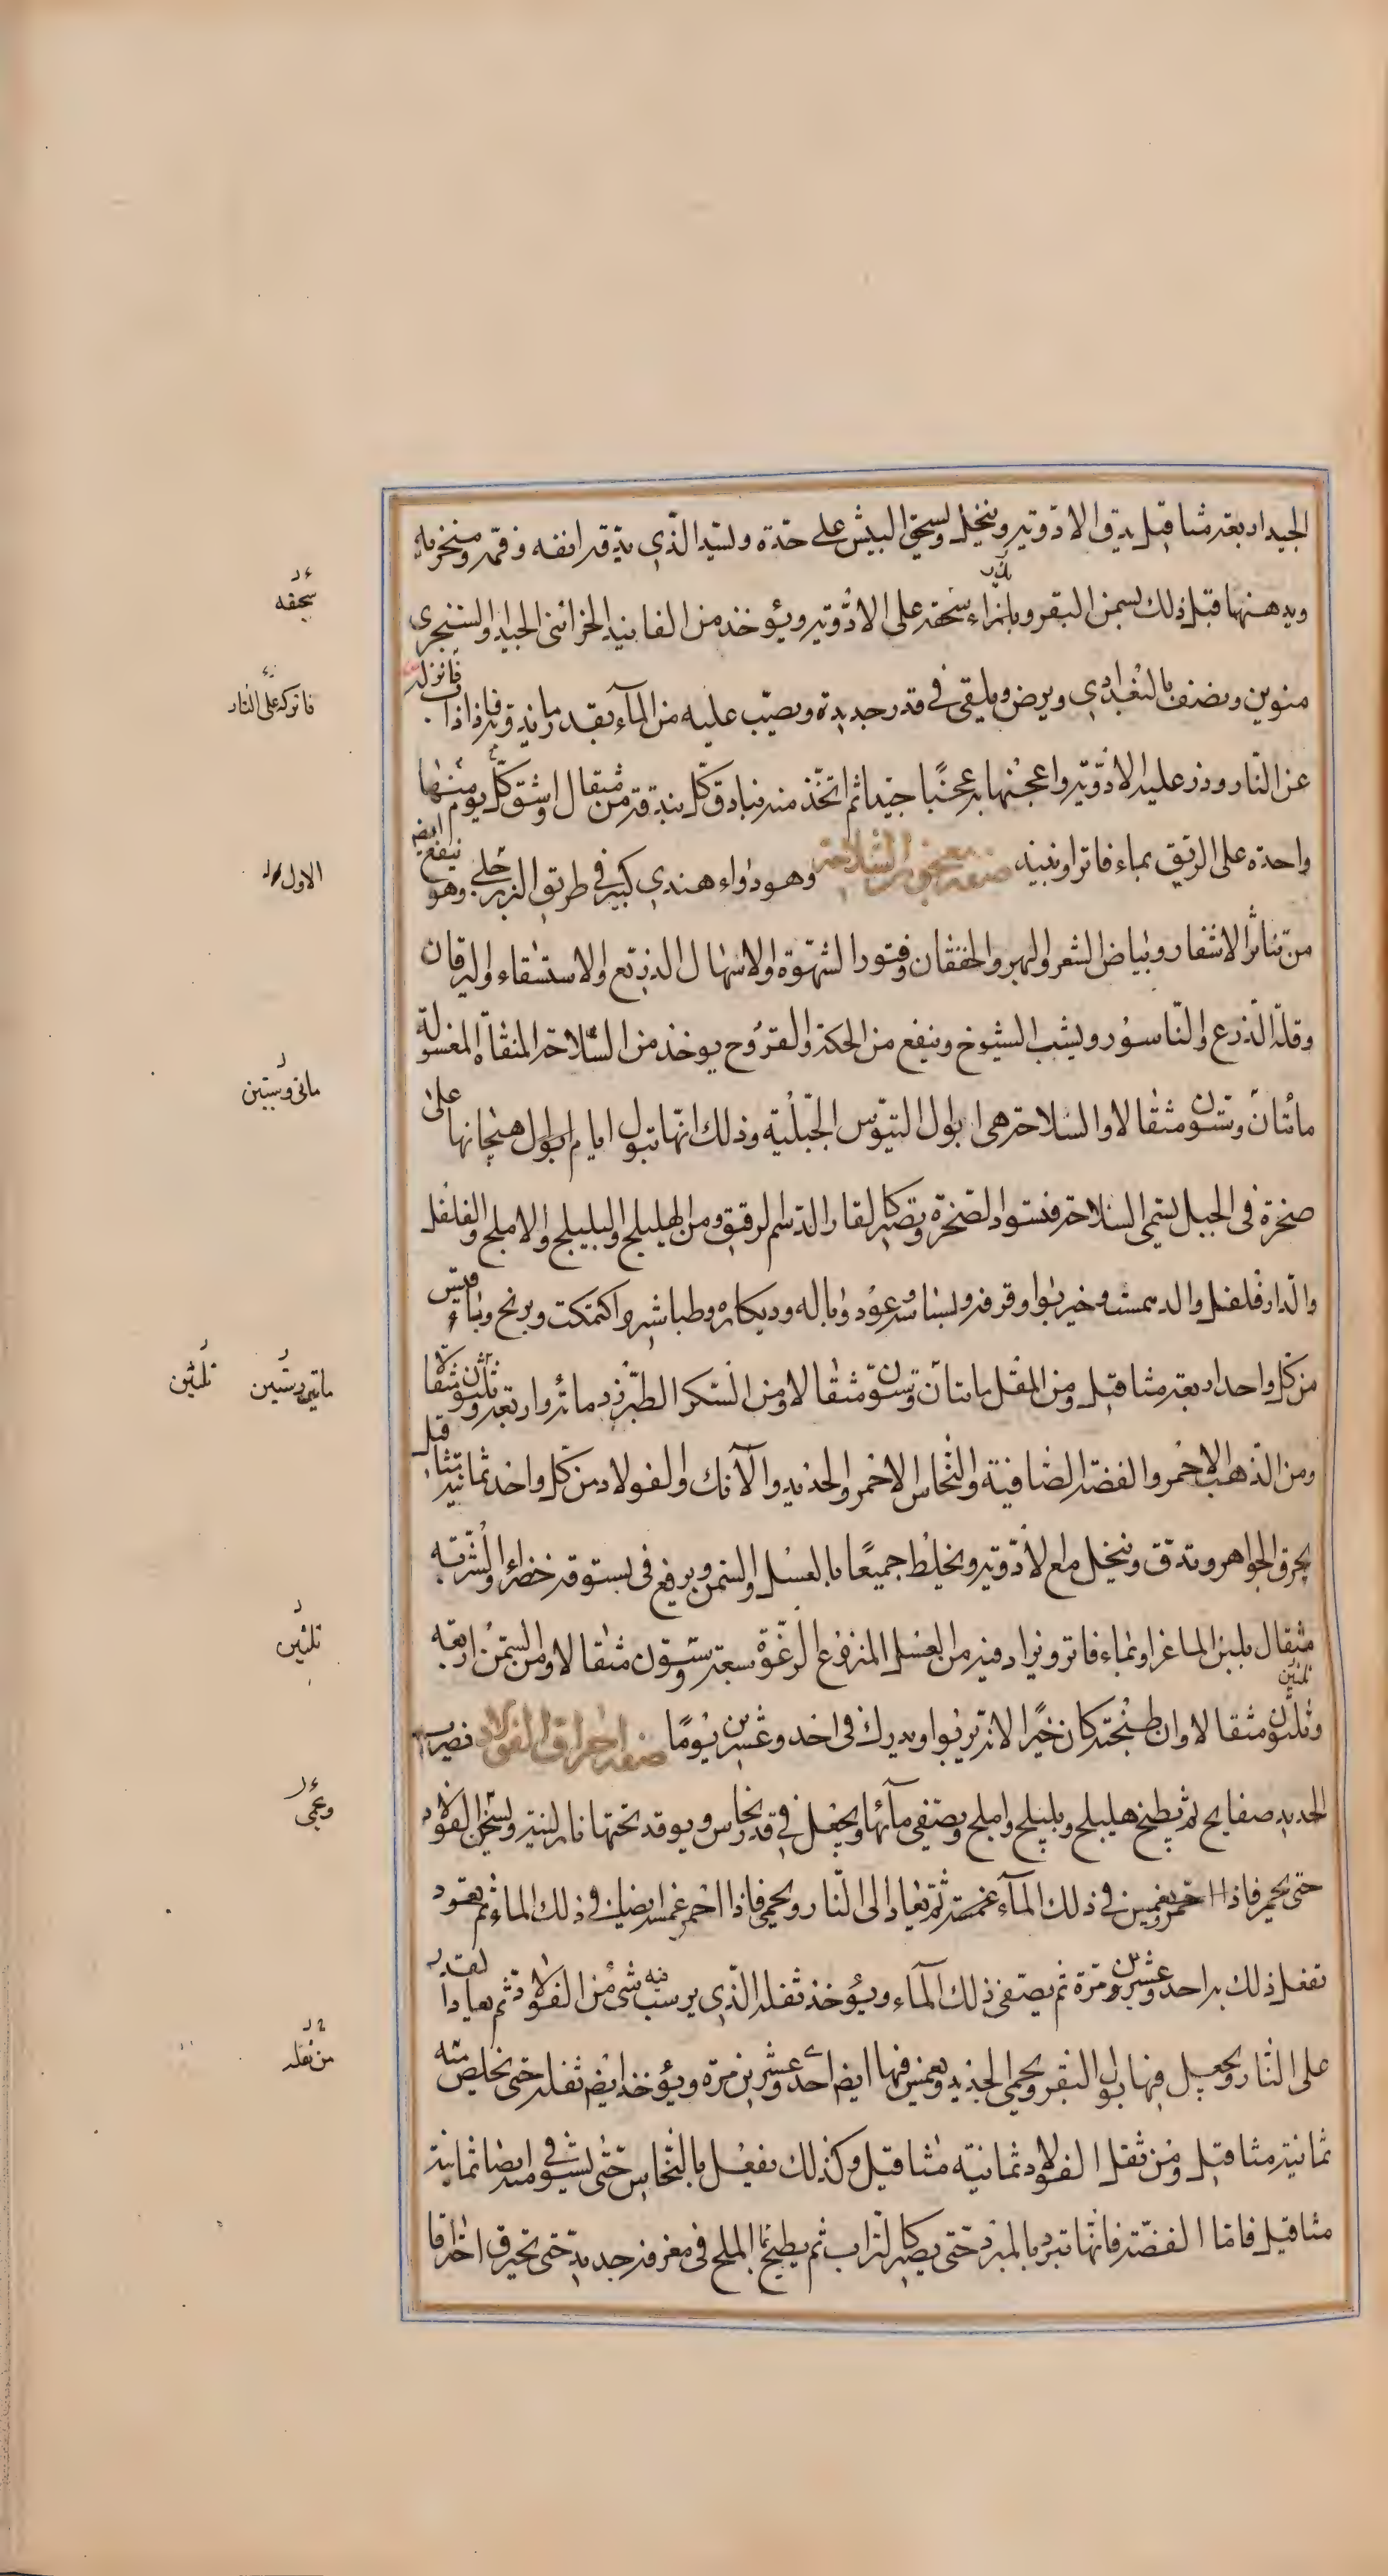 الجيد اربعة مثاقيل يدق الادوية وينخل ويسحق البيش على حدة وليشد الذي يدقه انفه وفمه ومنخريه
ويدهنها قبل ذلك بسمن البقر وبازاء سحقه على الادوية ويؤخذ من الفانيذ الخزائني الجيد والسنجري
منوين ونصف بالبغدادي ويرض ويلقى في قدر جديدة ويصب عليه من الماء بقدر ما يذوب فاذا ذاب فانزله
عن النار وذر عليه الادوية واعجنها به عجنا جيدا ثم اتخذ منه بنادق كل بندقة من مثقال واسق كل يوم منها
واحدة على الريق بماء فاتر او نبيذ صفة معجون السلاحة وهو دواء هندي كبير في طريق البزرجلي وهو ينفع ايضا
من تناثر الاشفار وبياض الشعر والبهر والخفقان وفتور الشهوة والاسهال الذريع والاستسقاء واليرقان
وقلة الذرع والناسور ويشب الشيوخ وينفع من الحكة والقروح يوخذ من السلاحة المنقاة المغسولة
مأتان وستون مثقالا والسلاحة هي ابوال التيوس الجبلية وذلك انها تبول ايام ابوال هيجانها على
صخرة في الجبل تسمى السلاحة فتسود الصخرة وتصير كالقار الدسم الرقيق ومن الهليلج والبليلج والاملج والفلفل
والدارفلفل والدهمست وخيربوا وقرفة وبسباسه وعود وباله وديكاره وطباشير واكتمكت وبرنج وماقيس
من كل واحد اربعة مثاقيل ومن المقل مايتان وستون مثقالا ومن السكر الطبرزد مائة واربعة وثلثون مثقالا
ومن الذهب الاحمر والفضة الصافية والنحاس الاحمر والحديد والآنك والفولاد من كل واحد ثمانية مثاقيل
يحرق الجواهر وتدق وينخل مع الادوية ويخلط جميعا بالعسل والسمن ويرفع في بستوقة خضراء والشربة
مثقال بلبن الماعز او بماء فاتر ويزاد فيه من العسل المنزوع الرغوة سبعة وستون مثقالا ومن السمن اربعة
وثلثون مثقالا وان طبخته كان خيرا لانه يربوا ويدرك في احد وعشرين يوما صفة احراق الفولاد فيضرب
الحديد صفايح ثم يطبخ هليلج وبليلج واملج ويصفى مآئها ويجعل في قدر نحاس ويوقد تحتها نار لينة ويسخن الفولاد
حتى يحمر فاذا احمر ويغمس في ذلك المآء غمسة ثم يعاد الى النار ويحمى فاذا احمر غمس ايضا في ذلك الماء ثم يعود
تفعل ذلك به احد وعشرين مرة ثم يصفى ذلك المآء ويؤخذ ثفله الذي يرسب فيه شئ من الفولاد ثم يعاد القدر
على النار ويجعل فيها بول البقر ويحمى الحديد ويغمس فيها ايضا احد وعشرين مرة ويؤخذ ايضا ثفله حتى يخلص منه
ثمانية مثاقيل ومن ثفل الفولاد ثمانية مثاقيل وكذلك يفعل بالنحاس حتى يستوفي منه ايضا ثمانية
مثاقيل فاما الفضة فانها تبرد بالمبرد حتى يصير كالتراب ثم يطبخ بماء الملح في مغرفة جديد حتى تحترق احتراقا
سحقه
فاتركه على النار
الاول
ماتى وستين
ماتى وستين
ثلثين
ثلثين
ثلثين
ويحمى
من ثفله